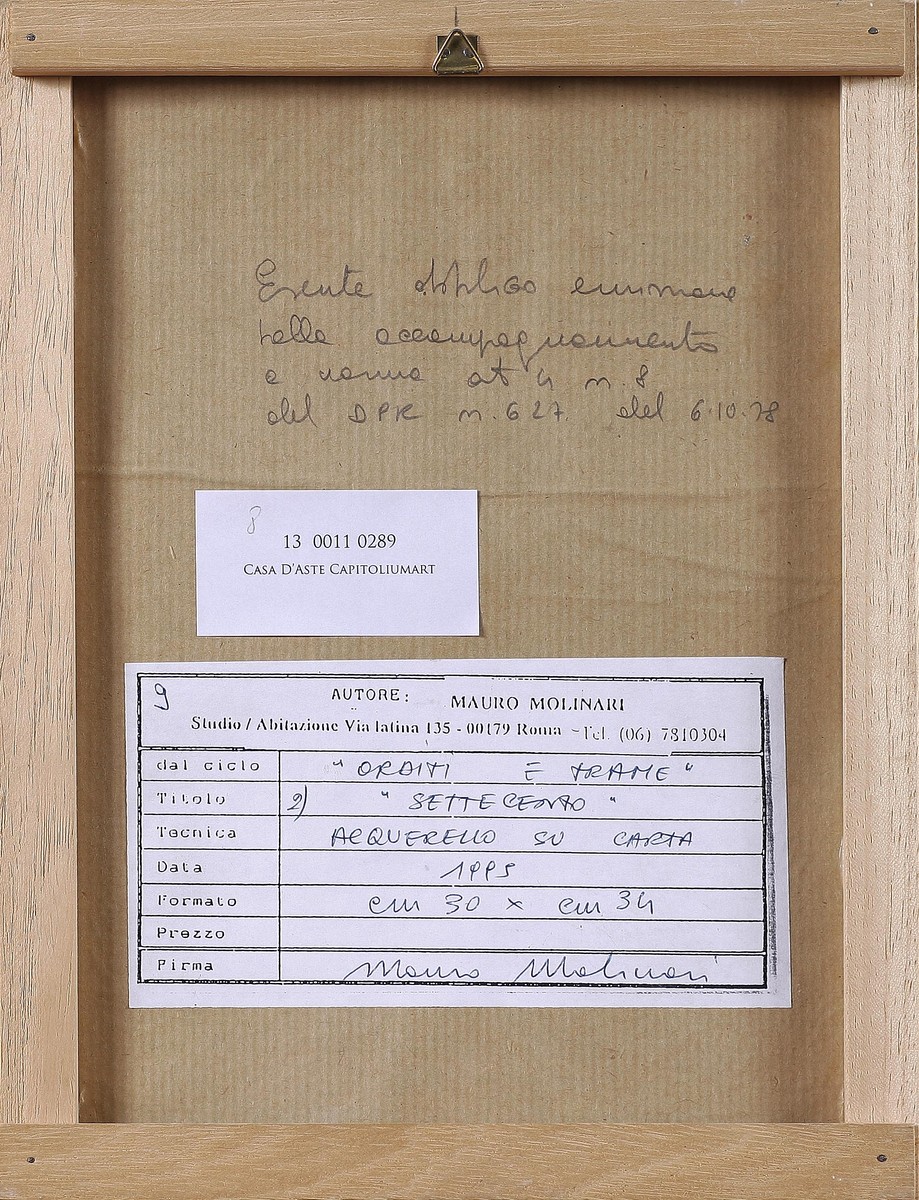 Esente obbligo emissione
bolla accompagnamento
a norma art 4 n. 8
del DPR n. 627. del 6.10.78
8
13 0011 0289
CASA D'ASTE CAPITOLIUMART
9
AUTORE: MAURO MOLINARI
Studio / Abitazione Via latina 135 - 00179 Roma - Tel. (06) 7810304
dal ciclo " ORDITI E TRAME "
Titolo 2) " SETTECENTO "
Tecnica ACQUERELLO SU CARTA
Data 1995
Formato cm 30 x cm 34
Prezzo
Firma Mauro Molinari